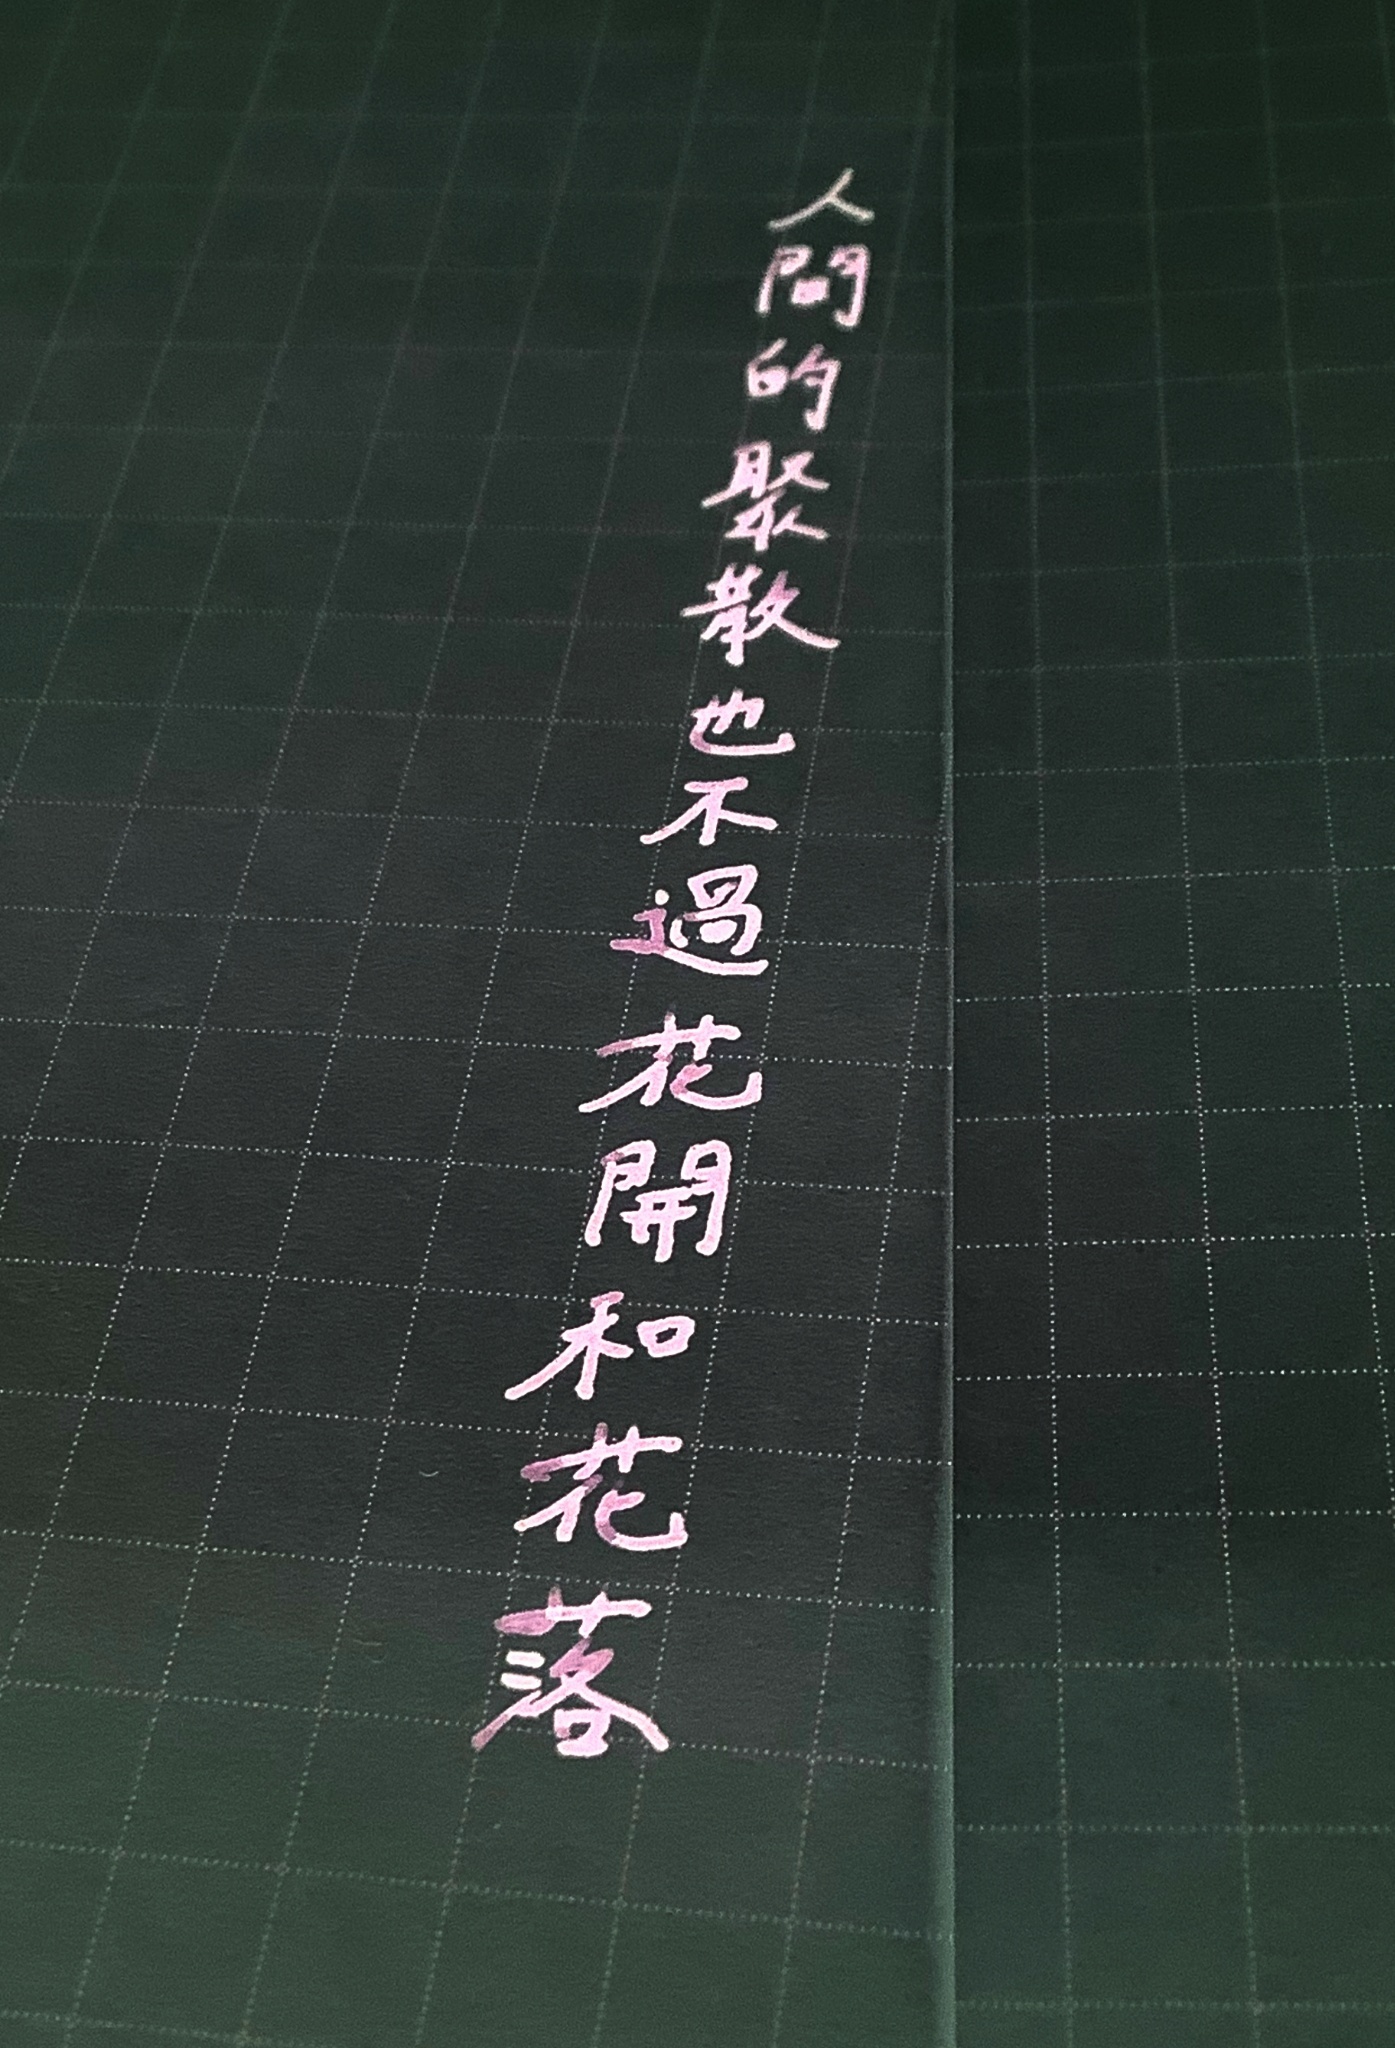 人間的聚散也不過花開和花落